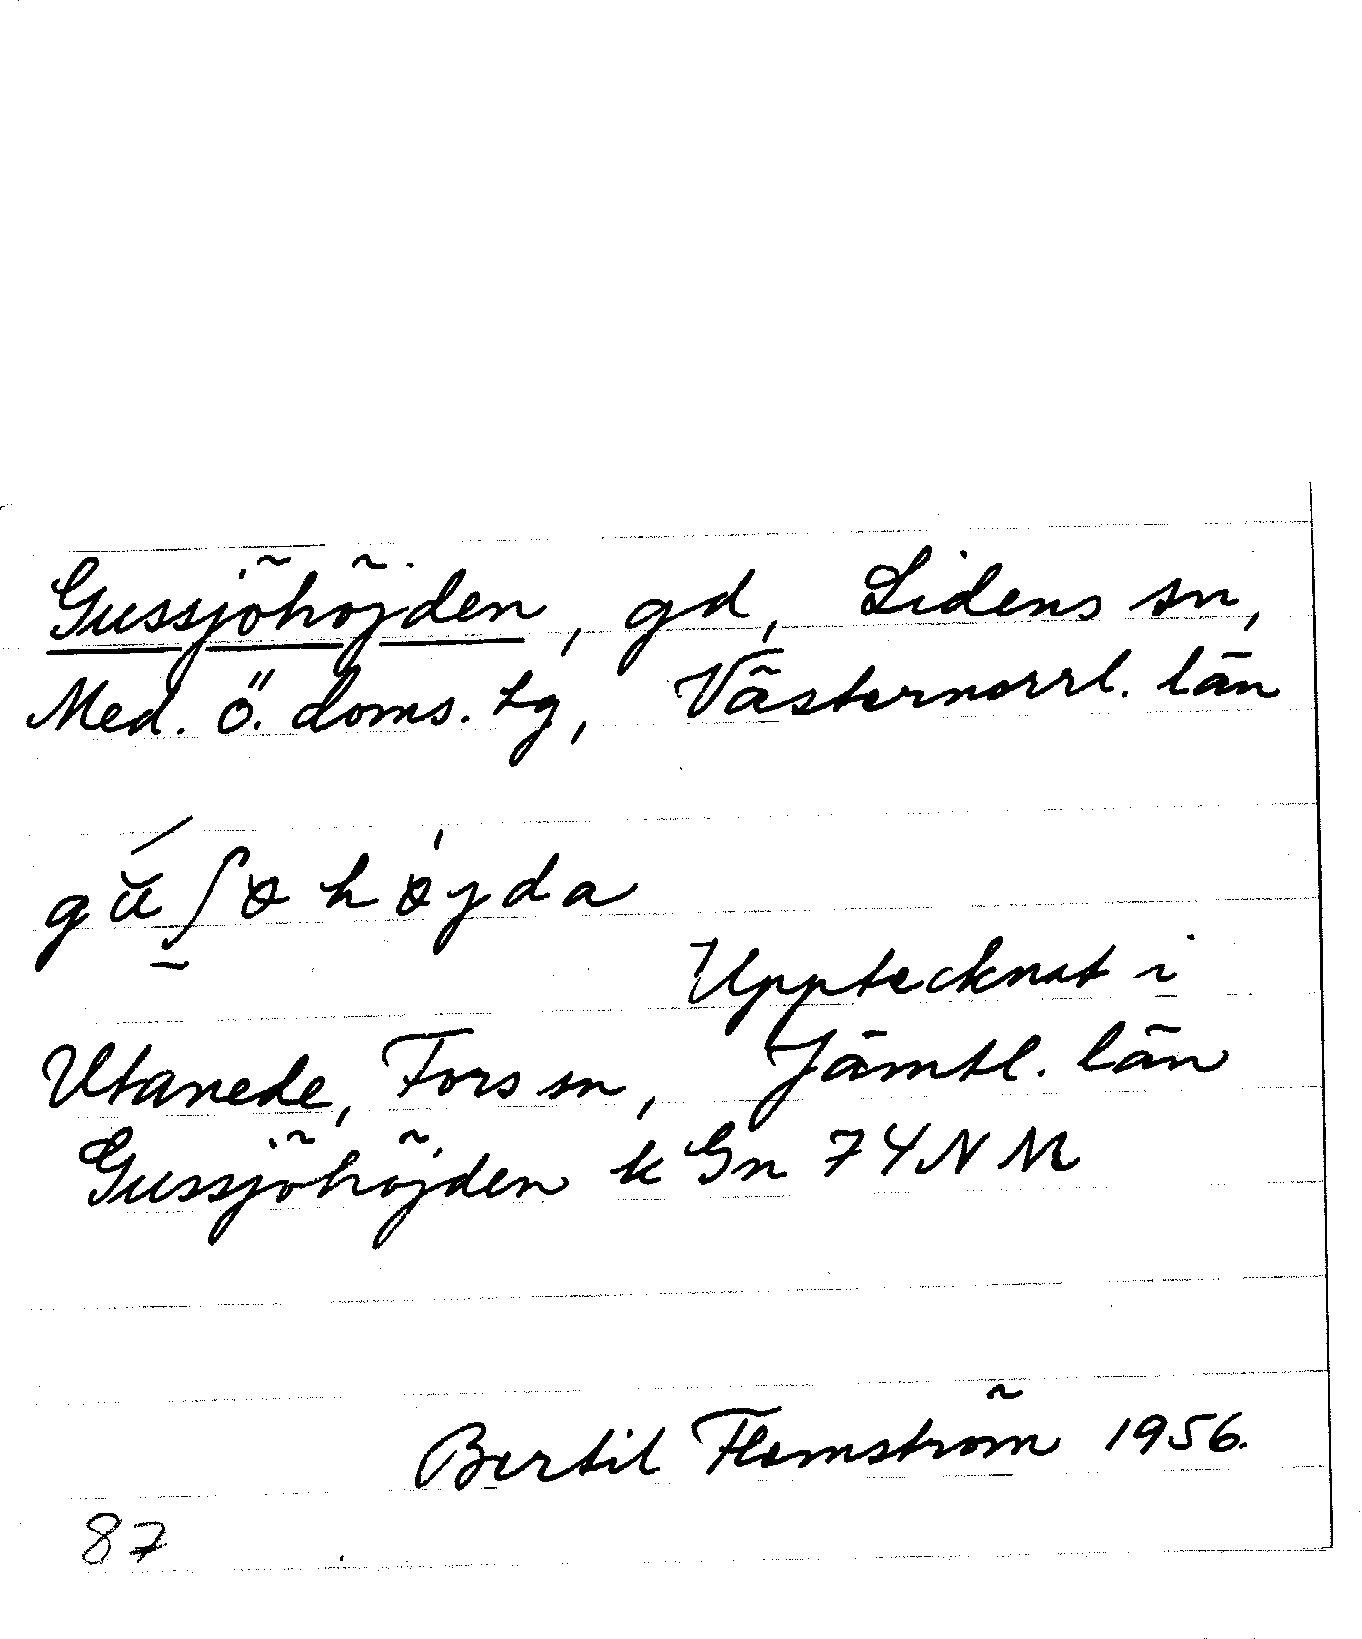 Gussjöhöjden, gd, Lidens sn,
Med. ö. doms. tg, Västernorrl. län
gŭ́ʃøhø̍jda
Upptecknat i
Utanede, Fors sn, Jämtl. län
Gussjöhöjden k Gn 74NM
Bertil Flemström 1956.
87